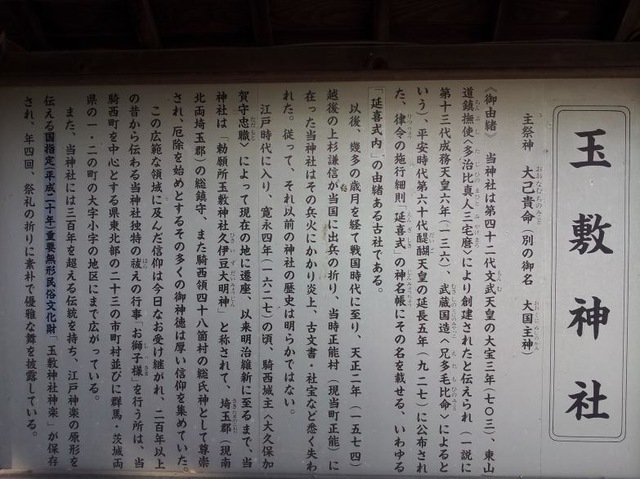 玉敷神社
主祭神　大己貴命（別の御名　大国主神）
おおなむちのみこと
おおくにぬしのかみ
《御由緒》　当神社は第四十二代文武天皇の大宝三年（七〇三）、東山
道鎮撫使〈多治比真人三宅麿〉により創建されたと伝えられ（一説に
第十三代成務天皇六年（一三六）、武蔵国造〈兄多毛比命〉によると
いう）、平安時代第六十代醍醐天皇の延長五年（九二七）に公布され
た、律令の施行細則『延喜式』の神名帳にその名を載せる、いわゆる
「延喜式内」の由緒ある古社である。
以後、幾多の歳月を経て戦国時代に至り、天正二年（一五七四）
越後の上杉謙信が当国に出兵の折り、当時正能村（現当町正能）に
在った当神社はその兵火にかかり炎上、古文書・社宝など悉く失わ
れた。従って、それ以前の神社の歴史は明らかではない。
江戸時代に入り、寛永四年（一六二七）の頃、騎西城主〈大久保加
賀守忠職〉によって現在の地に遷座、以来明治維新に至るまで、当
神社は、「勅願所玉敷神社久伊豆大明神」と称されて、埼玉郡（現南
北両埼玉郡）の総鎮守、また騎西領四十八箇村の総氏神として尊崇
され、厄除を始めとするその多くの御神徳は厚い信仰を集めていた。
この広範な領域に及んだ信仰は今日なお受け継がれ、二百年以上
の昔から伝わる当神社独特の祓えの行事「お獅子様」を行う所は、当
騎西町を中心とする県東北部の二十三の市町村並びに群馬・茨城両
県の一・二の町の大字小字の地区にまで広がっている。
また、当神社には三百年を超える伝統を持ち、江戸神楽の原形を
伝える国指定（平成二十年）重要無形民俗文化財「玉敷神社神楽」が保存
され、年四回、祭礼の折りに素朴で優雅な舞を披露している。